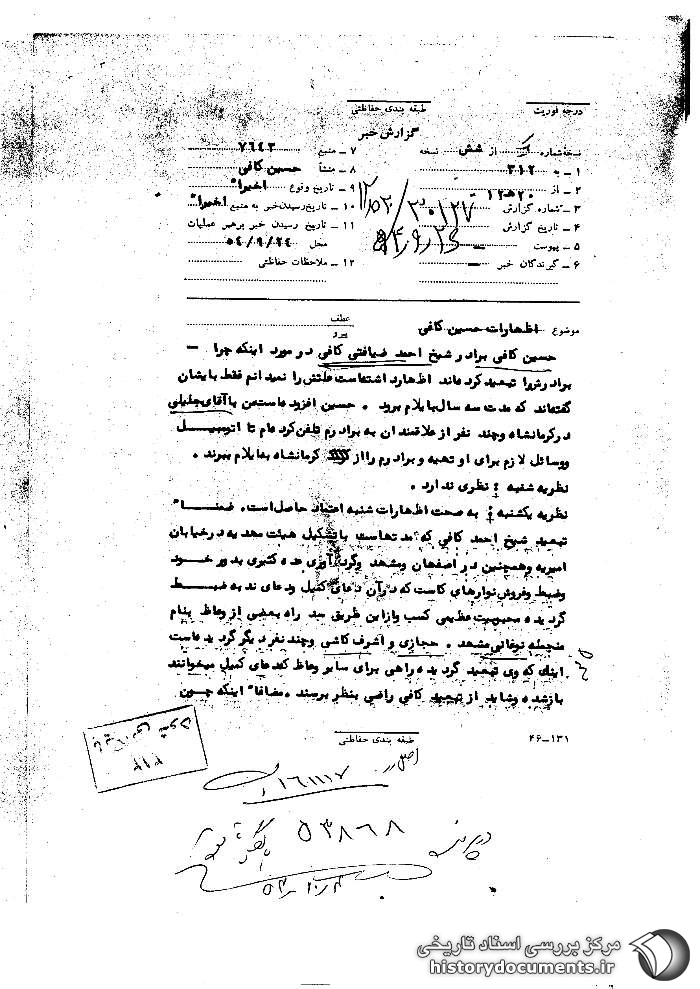 درجه فوریت
طبقه بندی حفاظتی
گزارش خبر
نسخه شماره یک از شش نسخه
۱ ـ به ۳۱۲
۲ ـ از ۲۰ ه‍ ۱۲
۳ ـ شماره گزارش
۴ ـ تاریخ گزارش
۵ ـ پیوست ـ
۶ ـ گیرندگان خبر ـ
۷ ـ منبع ۷۶۴۳
۸ ـ منشأ حسین کافی
۹ ـ تاریخ وقوع اخیرا"
۱۰ ـ تاریخ رسیدن خبر به منبع اخیرا"
۱۱ ـ تاریخ رسیدن خبر برهبر عملیات
محل ۵۴/۹/۲۴
۱۲ ـ ملاحظات حفاظتی
موضوع اظهارات حسین کافی
عطف
پیرو
حسین کافی برادر شیخ احمد ضیافتی کافی در مورد اینکه چرا ـ
برادرش را تبعید کرده‌اند اظهار داشته است علتش را نمیدانم فقط بایشان
گفته‌اند که مدت سه سال بایلام برود . حسین افزوده است من با آقای جلیلی
در کرمانشاه و چند نفر از علاقمندان به برادرم تلفن کرده‌ام تا اتومبیل
و وسائل لازم برای او تهیه و برادرم را از کرمانشاه به ایلام ببرند .
نظریه شنبه : نظری ندارد .
نظریه یکشنبه : به صحت اظهارات شنبه اعتماد حاصل است . ضمنا"
تبعید شیخ احمد کافی که مدتهاست با تشکیل هیئت مهدیه در خیابان
امیریه و همچنین در اصفهان و مشهد و گردآوری عده کثیری بدور خود
وضبط و فروش نوارهای کاست که در آن دعای کمیل و دعای ندبه ضبط
گردیده محبوبیت عظیمی کسب و از این طریق سد راه بعضی از وعاظ بنام
منجمله نوغانی مشهد . حجازی و اشرف کاشی و چند نفر دیگر گردیده است
اینک که وی تبعید گردیده راهی برای سایر وعاظ که دعای کمیل میخوانند
باز شده و شاید از تبعید کافی راضی بنظر برسند . مضافا" اینکه چون
۴۶-۱۳۱
طبقه بندی حفاظتی
اصل در
۱۶۱۱۱۷
در پرونده
۵۳۸۶۸
مرکز بررسی اسناد تاریخی
historydocuments.ir